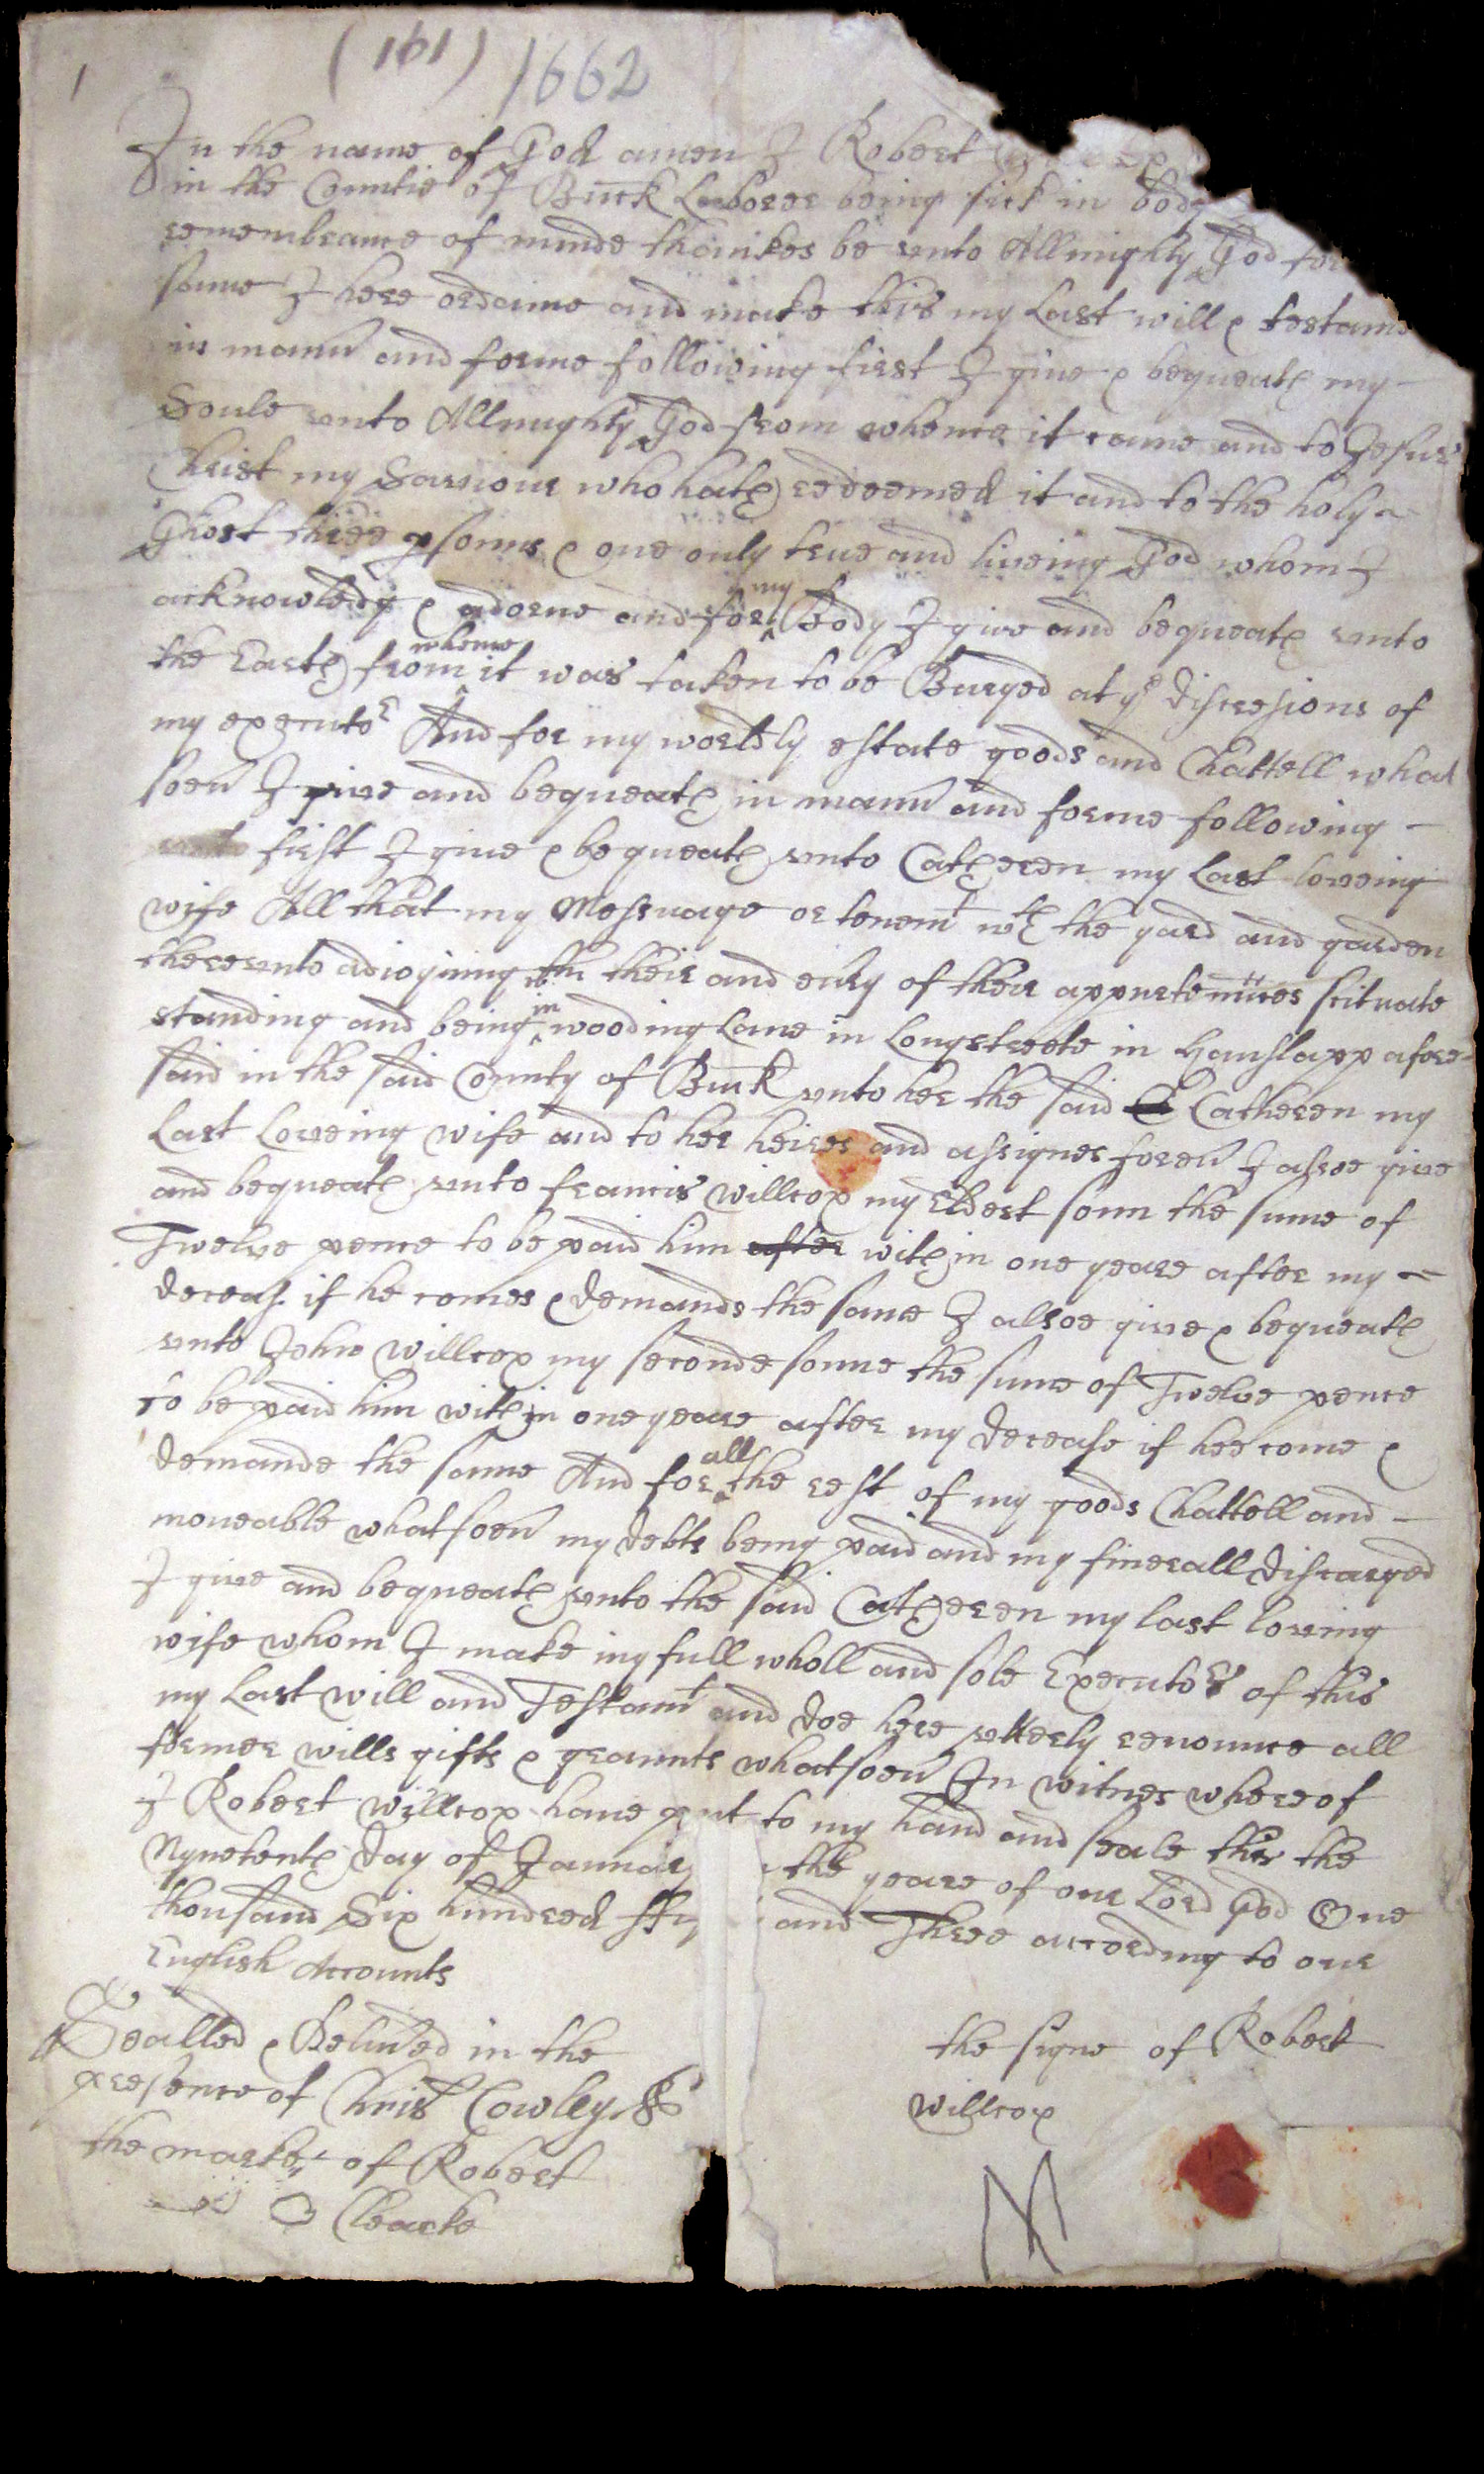 (161) 1662
In the name of God amen I Robert
in the Countie of Buck Laborer being sick in body
remembrance of minde thankes be unto Allmighty God for
same I here ordaine and make this my Last will & testame
in mann and forme following first I give & bequeath my
Soule unto Allmighty God from whence it came and to Jesus
Christ my Saviour who hath redeemed it and to the holy
Ghost three psonns & one only true and liveing God whom I
acknowledg & adorne and for my Body I give and bequeath unto
the Earth from whence it was taken to be Buryed at ye discresions of
my executor And for my worldly estate goods and Chattell what
soev I give and bequeath in mann and forme following
first I give & bequeath unto Catheren my Last loveing
wife All that my Messuage or tenemt wth the yard and garden
thereunto adioyning wth their and eviry of their appurtennces scituate
standing and being in wooding Lane in Longstreete in Hanslapp afore
said in the said County of Buck unto her the said Catheren my
Last Loveing wife and to her heires and assignes forev I alsoe give
and bequeath unto francis Willcox my Eldest sonn the sume of
Twelve pence to be paid him after within one yeare after my
deceas if he comes & demands the same I alsoe give & bequeath
unto John Willcox my seconde sonne the sume of Twelve pence
to be paid him within one yeare after my decease if hee come &
demande the same And for all the rest of my goods Chattell and
moveable whatsoev my debts being paid and my finerall discarged
I give and bequeath unto the said Catheren my last loveing
wife whom I make my full wholl and sole Executor of this
my Last will and Testamt and doe here utterly renounce all
former wills gifts & graunts whatsoev In witnes whereof
I Robert Willcox have put to my hand and seale this the
Nynetenth day of January the yeare of our Lord God One
thousand Six hundred and Three according to our
English Accounts
Sealled & Delived in the
presence of Christ Cowley &
the marke of Robert
Clearke
the signe of Robert
Willcox